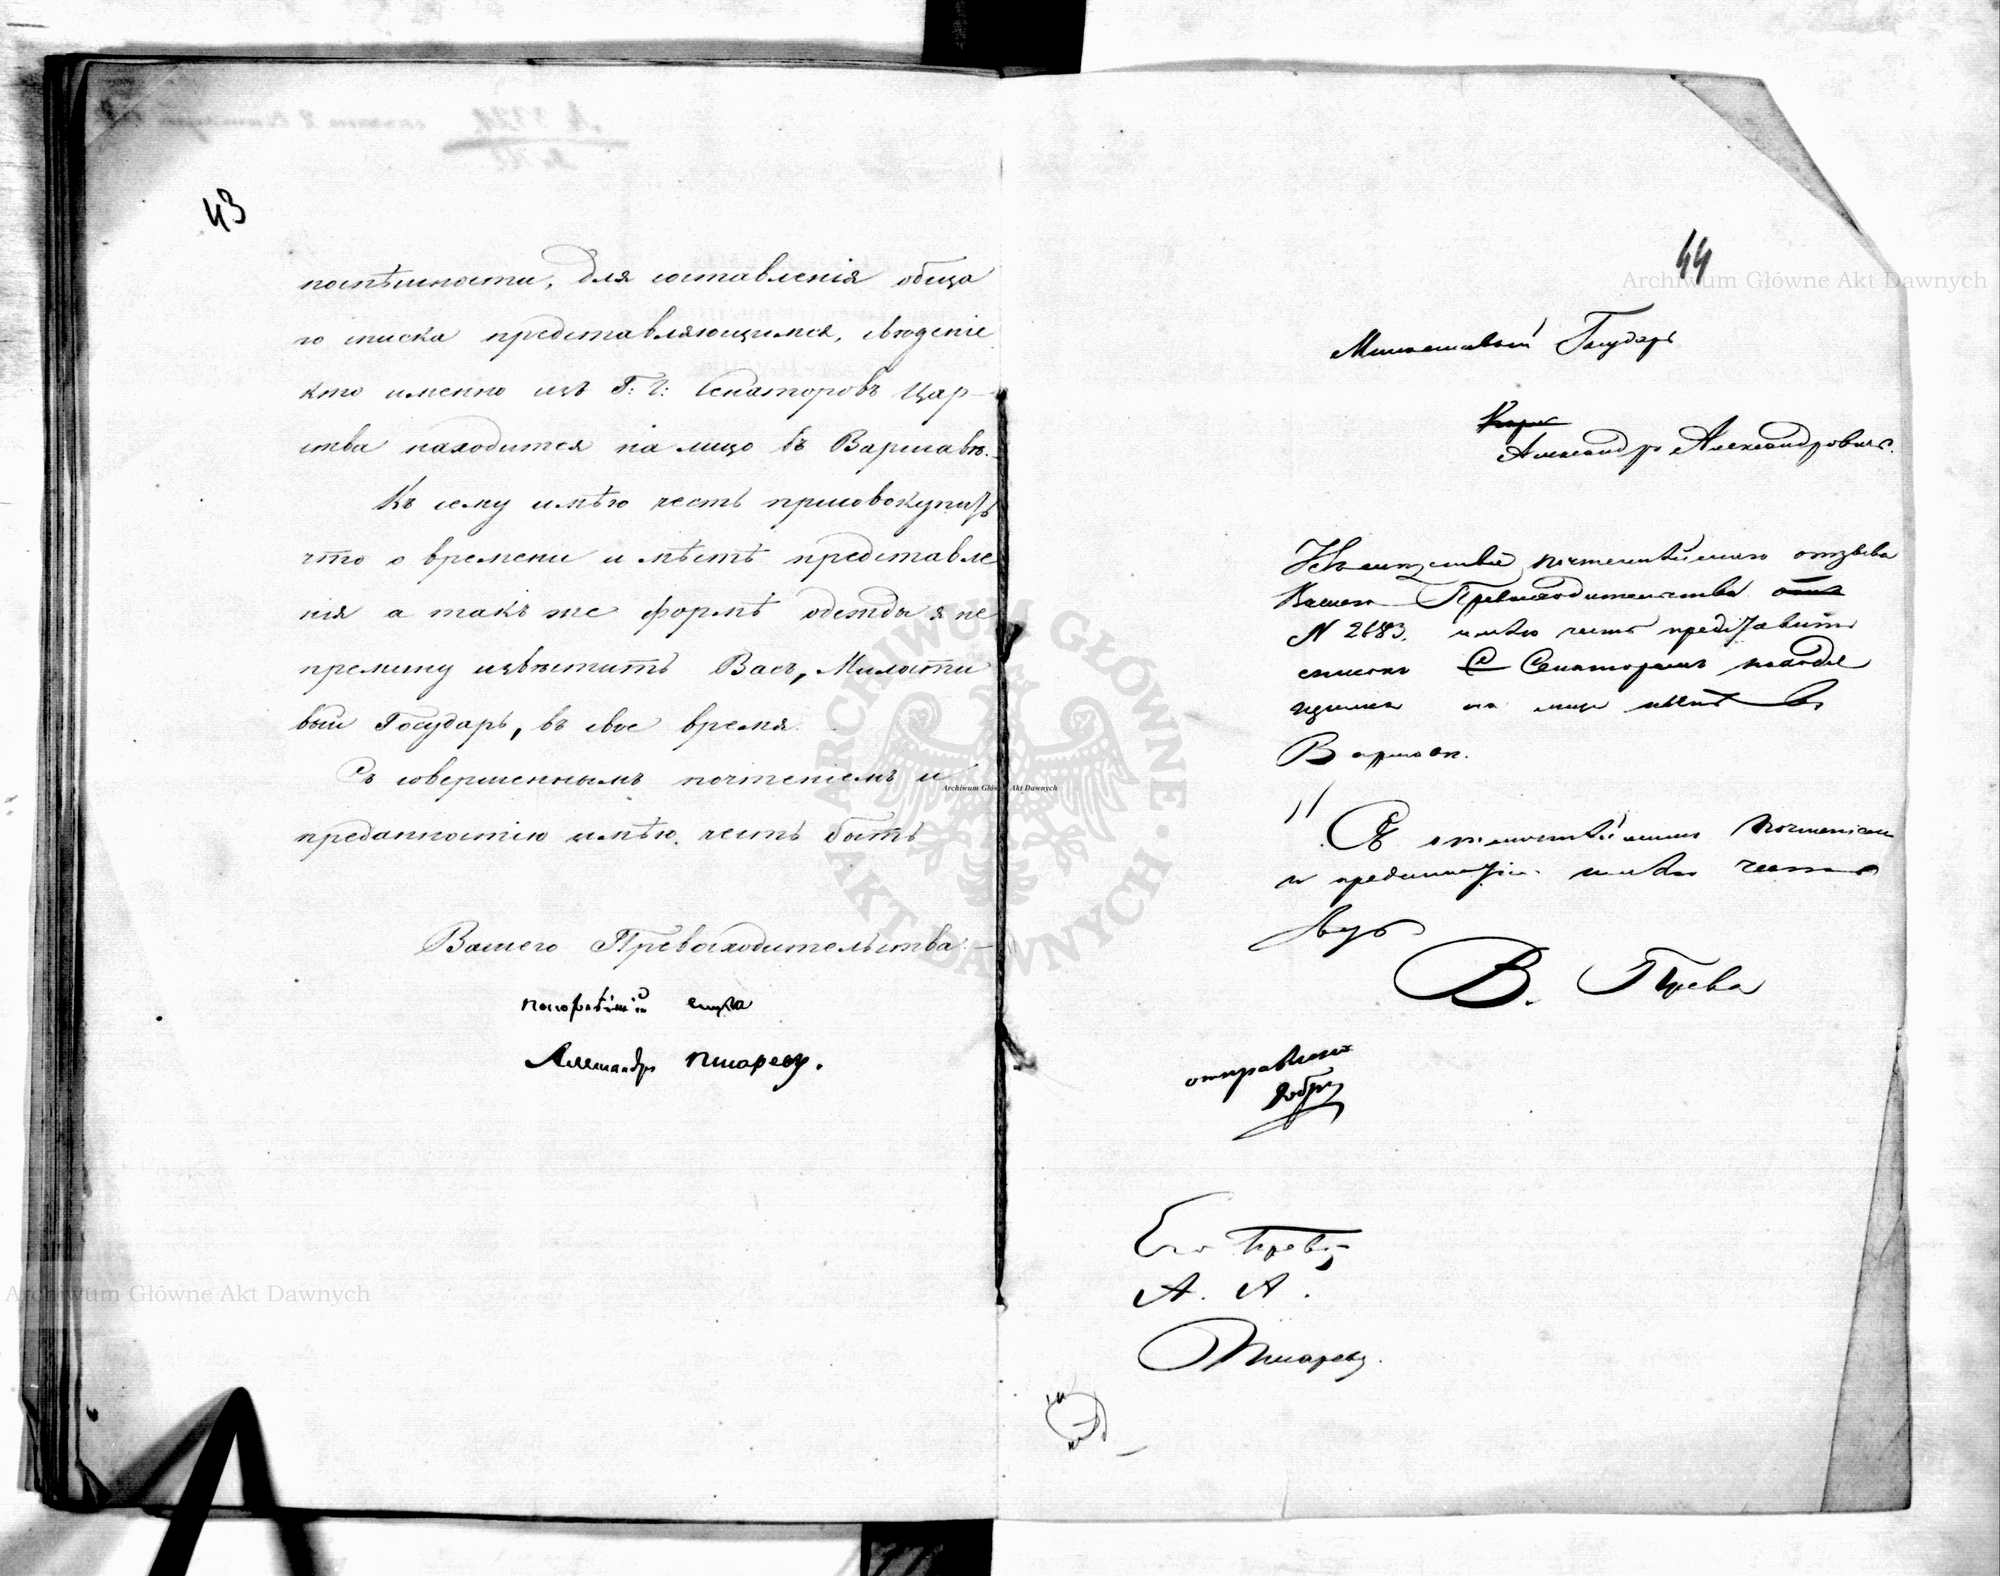 43
поспѣшности, для составленія обща
го списка представляющимся, свѣденіе
кто именно изъ Г: Г: Сенаторовъ Цар-
ства находится на лицо въ Варшавѣ.
Къ сему имѣю честь присовокупить
что о времени и мѣстѣ представле
нія а такъ же формѣ одежды я не
премину извѣстить Васъ, Милости
вый Государь, въ свое время.
Съ совершеннымъ почтеніемъ и
преданностію имѣю честь быть
Вашего Превосходительства
покорнѣйшій слуга
Александръ Писаревъ.
44
Милостивый Государь
Александръ Александровичъ.
почтеннѣйшаго отзыва
Вашего Превосходительства
N 2683. имѣю честь представить
списокъ Сенаторамъ находя
щимся на лицо въ
Варшавѣ.
Съ почтеніемъ
и преданностію имѣю честь
быть
В. Прева
отправлено
Его Прев
А. А.
Писареву.
Archiwum Główne Akt Dawnych
Archiwum Główne Akt Dawnych
Archiwum Główne Akt Dawnych
ARCHIWUM GŁÓWNE AKT DAWNYCH